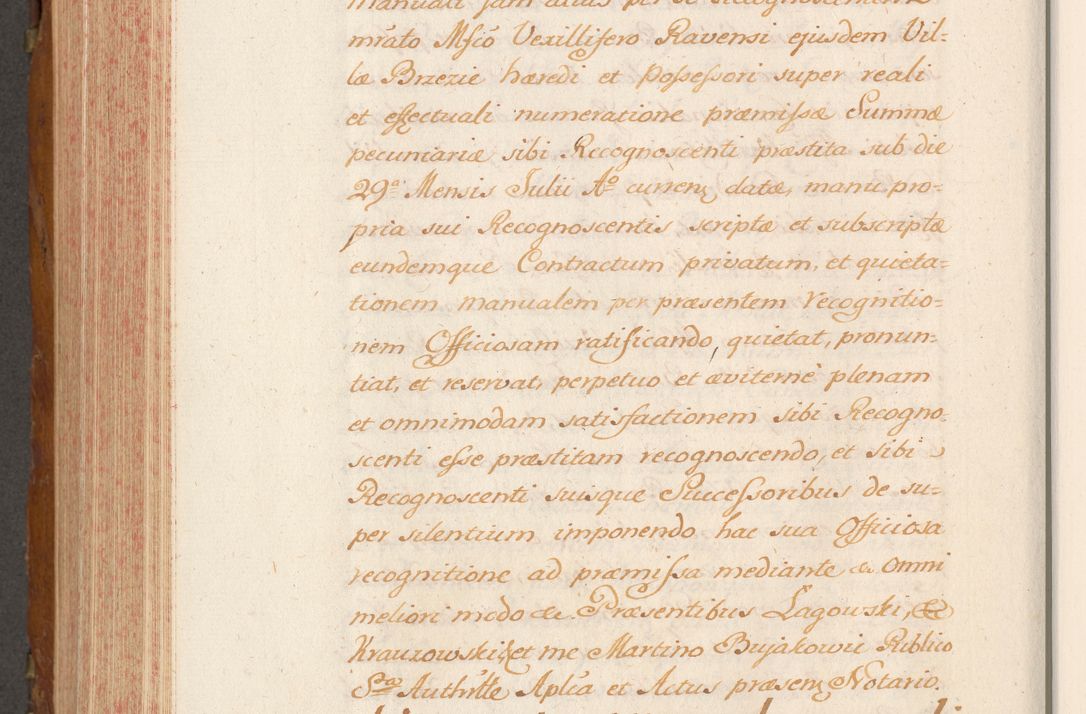 mrāto Mfcō Vexillifero Ravensi ejusdem Vil=
læ Brzezie hæredi et Possessori super reali
et effectuali numeratione præmissæ Summæ
pecuniariæ sibi Recognoscenti præstita sub die
29ª Mensis Julii Aº currenꝫ datæ, manu pro=
pria sui Recognoscentis scriptæ et subscriptæ
eundemque Contractum privatum, et quieta=
tionem manualem per præsentem recognitio=
nem Officiosam ratificando, quietat, pronun=
tiat, et reservat, perpetuo et æviternè plenam
et omnimodam satisfactionem sibi Recogno=
scenti esse præstitam recognoscendo, et sibi
Recognoscenti suisque Successoribus de su=
per silentium imponendo hac sua Officiosa
recognitione ad præmissa mediante &. Omni
meliori modo &c. Præsentibus Lagowski, &
Krauzowski & et me Martino Bujakowic Publico
Sra Authrtte Aplca et Actus præsenꝫ Notario.